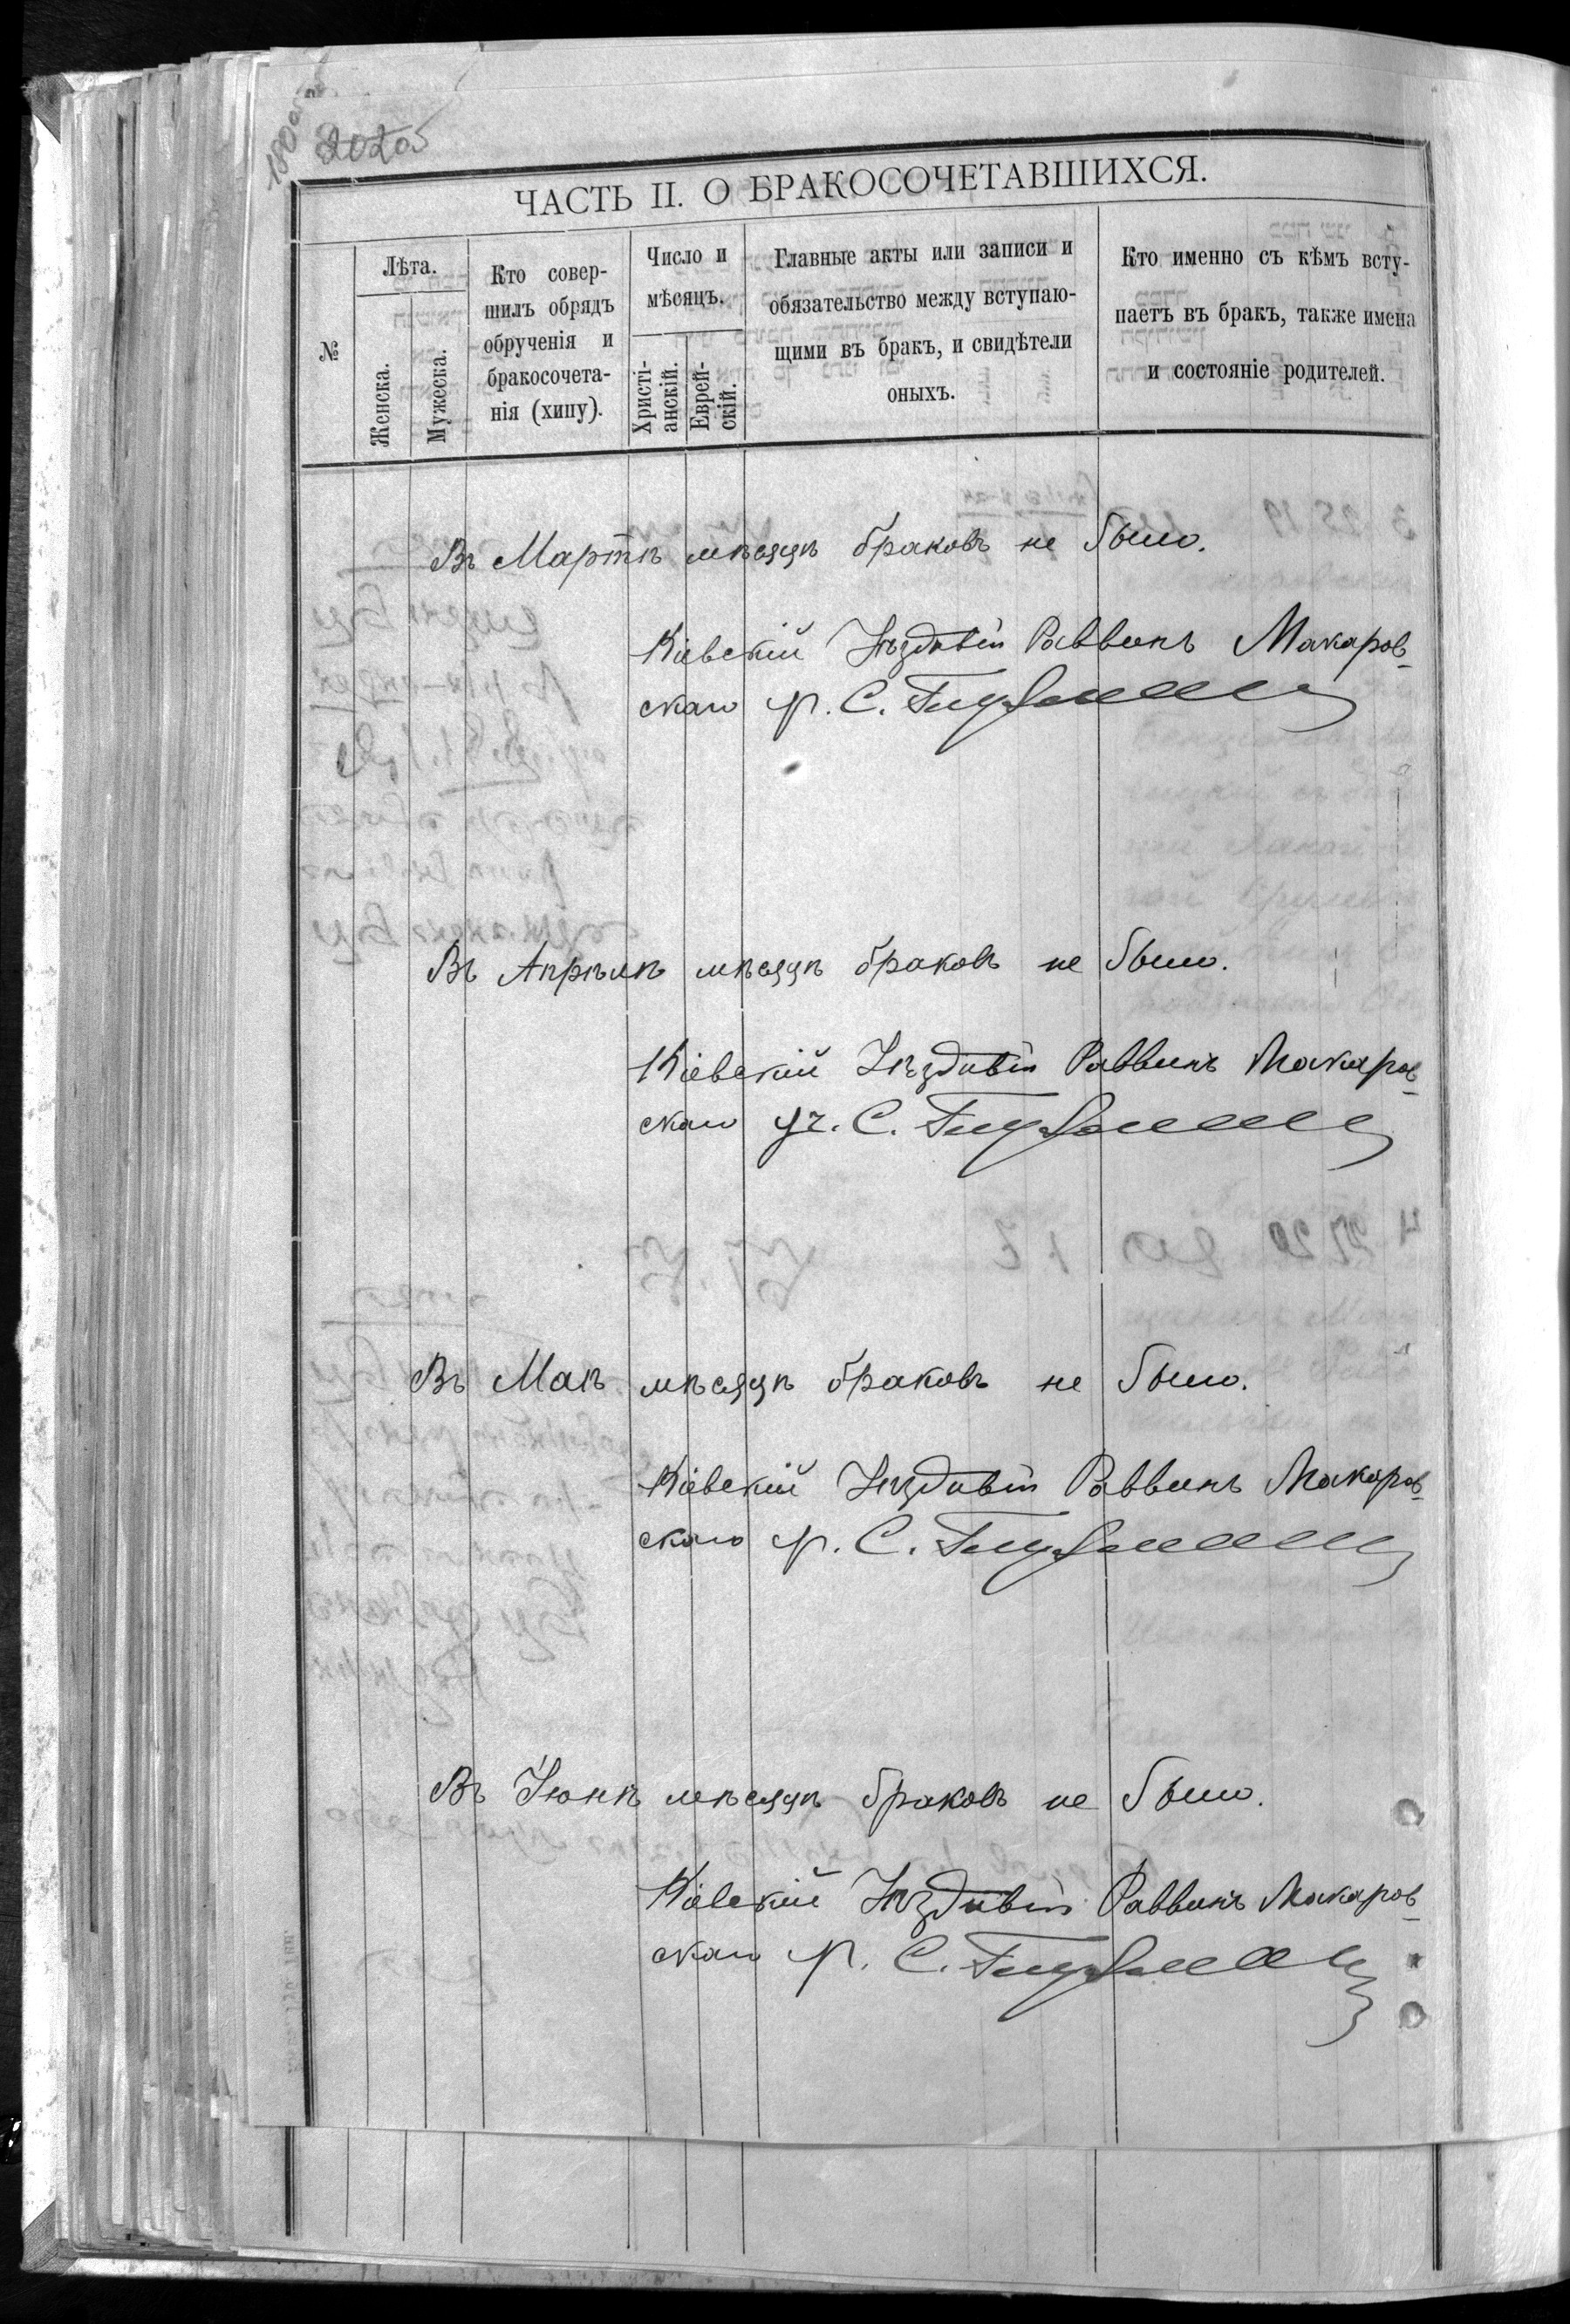 ЧАСТЬ II. О БРАКОСОЧЕТАВШИХСЯ.
№
Лѣта.
Женска.
Мужеска.
Кто совер-
шилъ обрядъ
обрученія и
бракосочета-
нія (хипу).
Число и
мѣсяцъ.
Христі-
анскій.
Еврей-
скій.
Главные акты или записи и
обязательство между вступаю-
щими въ бракъ, и свидѣтели
оныхъ.
Кто именно съ кѣмъ всту-
паетъ въ бракъ, также имена
и состояніе родителей.
Въ Мартѣ мѣсяцѣ браковъ не было.
Кіевскій Уѣздный Раввинъ Макаров-
скаго уч. С.
Въ Апрѣлѣ мѣсяцѣ браковъ не было.
Кіевскій Уѣздный Раввинъ Макаров-
скаго уч. С.
Въ Маѣ мѣсяцѣ браковъ не было.
Кіевскій Уѣздный Раввинъ Макаров-
скаго уч. С.
Въ Іюнѣ мѣсяцѣ браковъ не было.
Кіевскій Уѣздный Раввинъ Макаров-
скаго уч. С.